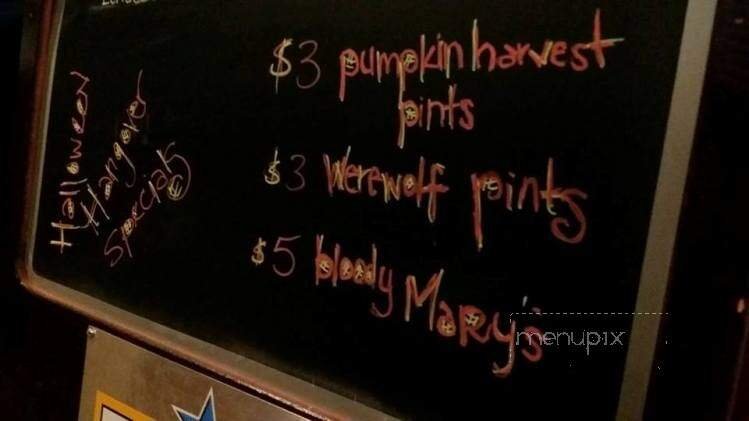 Halloween
Hangover
Specials
$3 pumpkin harvest
pints
$3 Werewolf pints
$5 bloody Mary's
menupix